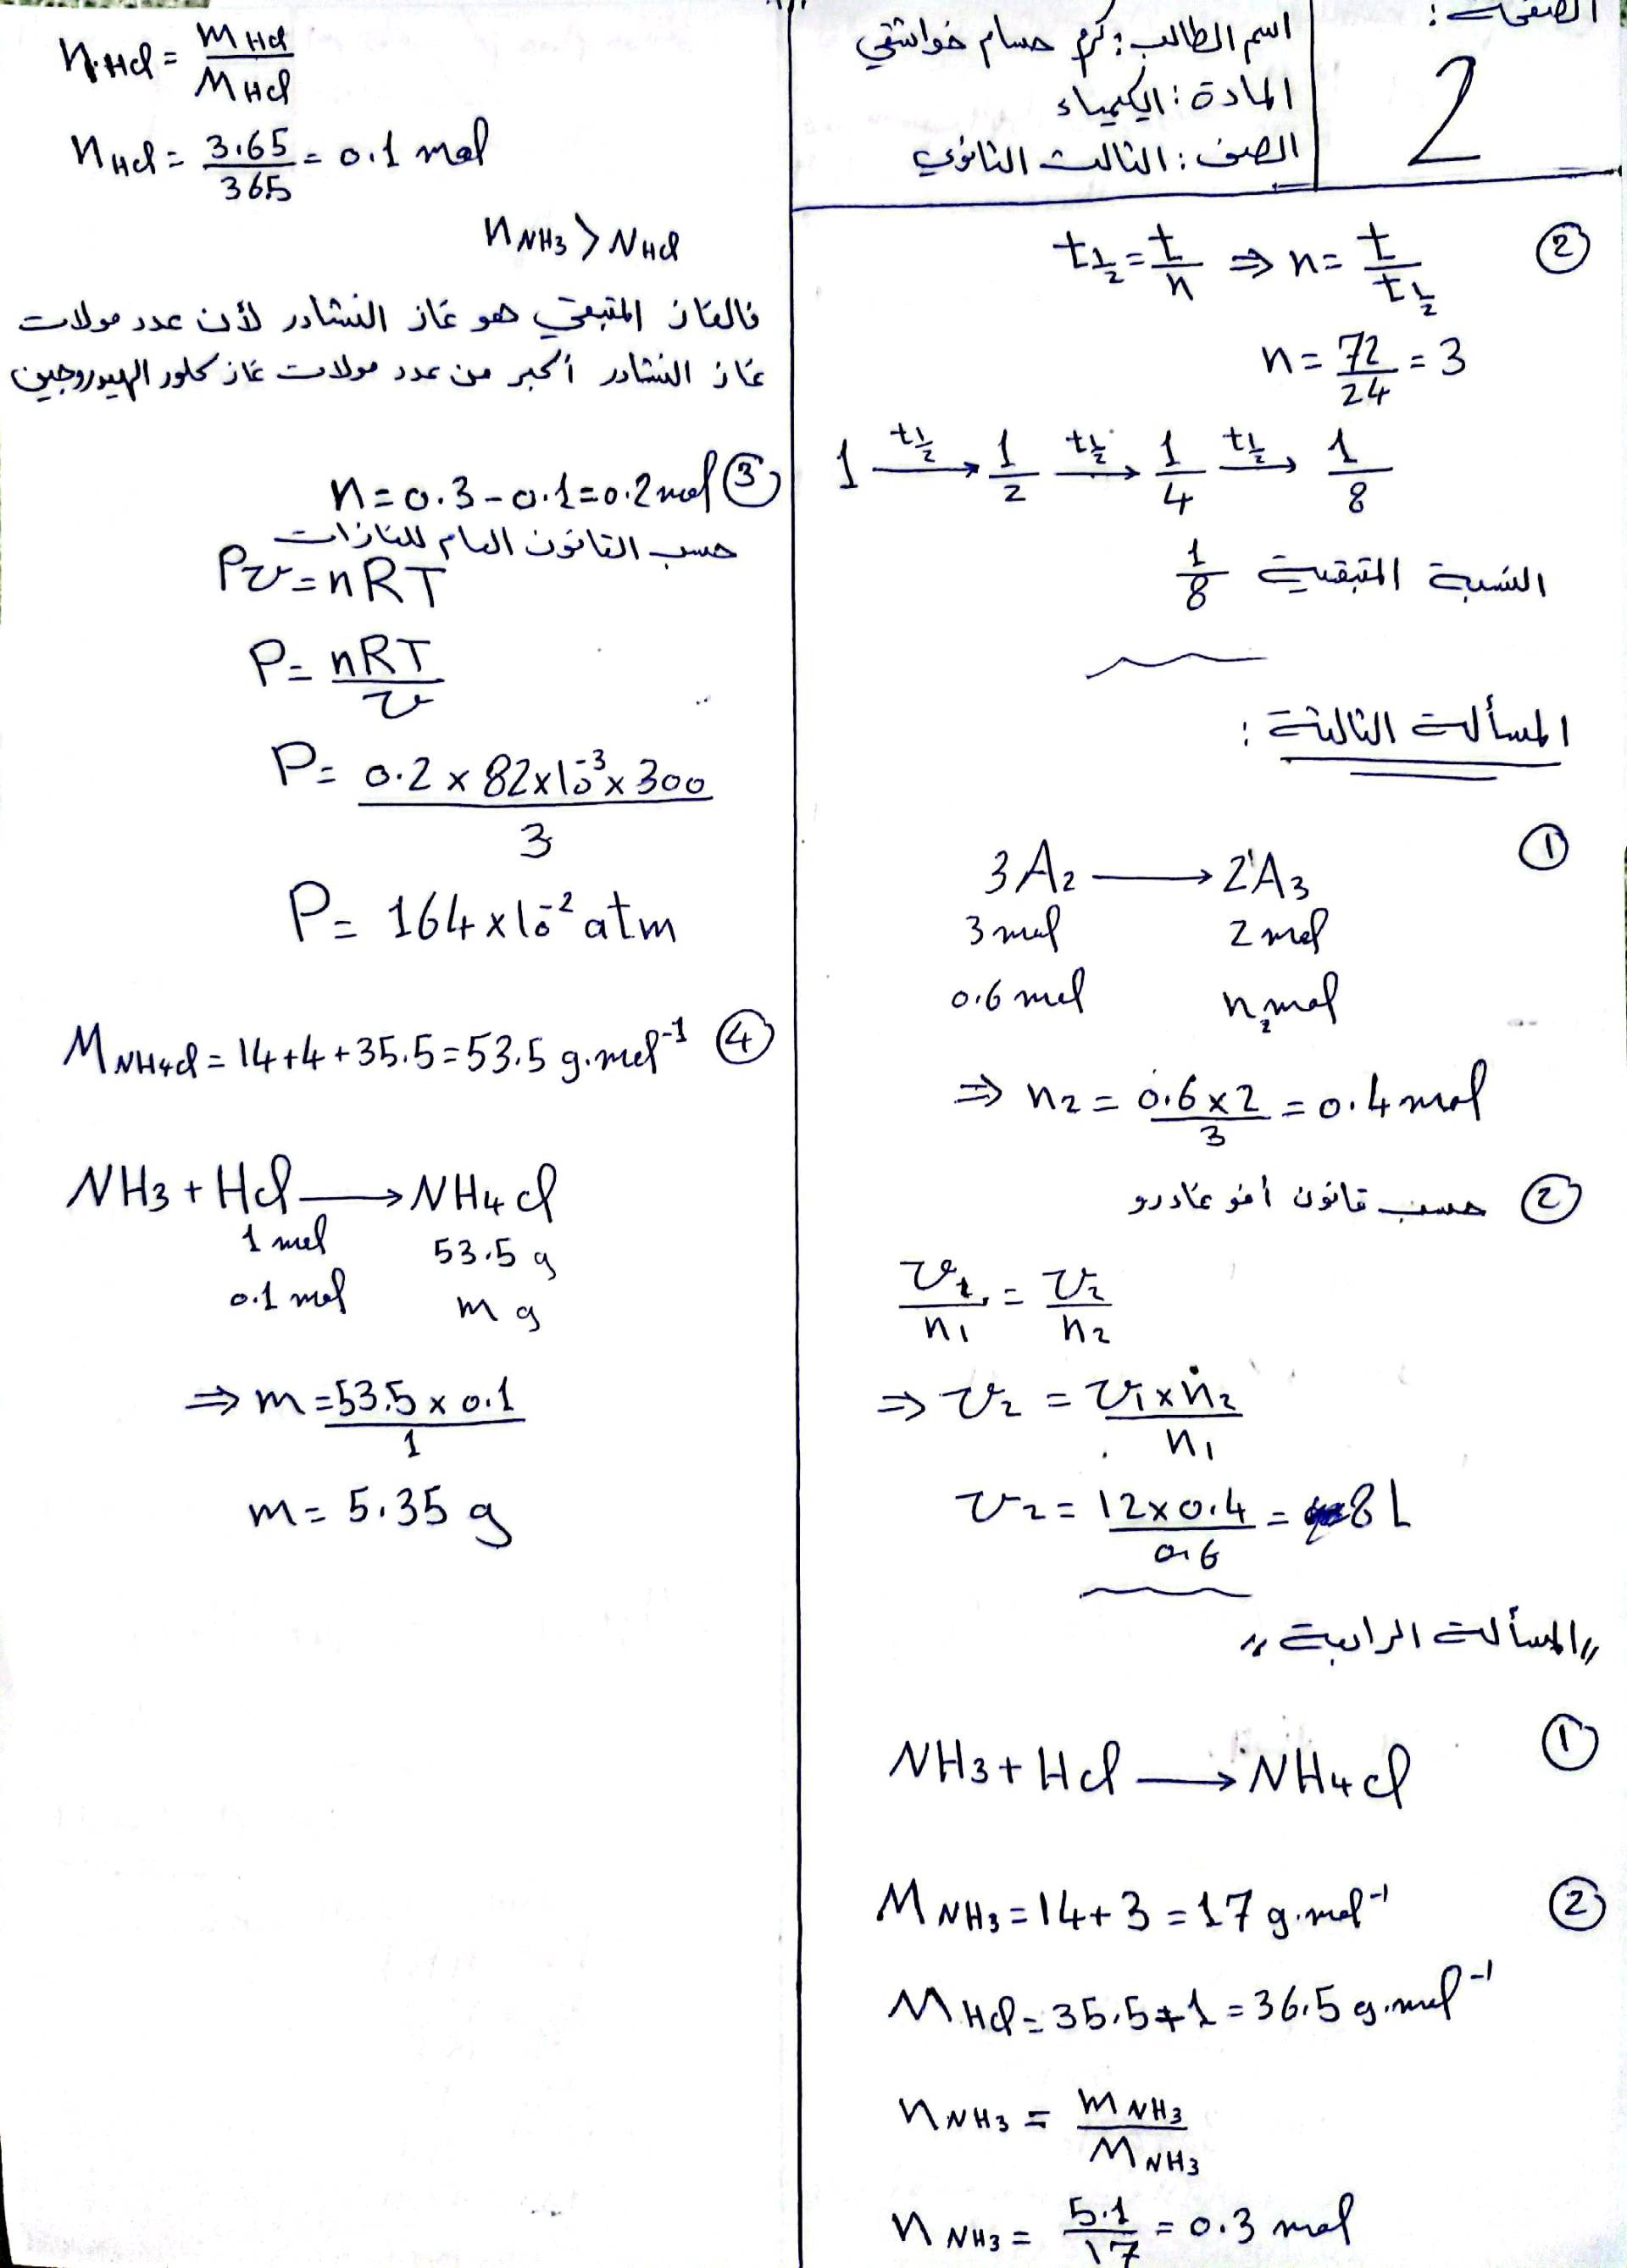 الصفحات:
2
اسم الطالب: كرم حسام خواشقي
المادة: الكيمياء
الصف: الثالث الثانوي
② t½ = t/n ⇒ n = t/t½
n = 72/24 = 3
1 —t½→ 1/2 —t½→ 1/4 —t½→ 1/8
النسبة المتبقية 1/8
المسألة الثالثة:
①
3A₂ → 2A₃
3 mol 2 mol
0.6 mol n₂ mol
⇒ n₂ = 0.6 × 2 / 3 = 0.4 mol
② حسب قانون أفوغادرو
v₁/n₁ = v₂/n₂
⇒ v₂ = v₁ × n₂ / n₁
v₂ = 12 × 0.4 / 0.6 = 8 L
"المسألة الرابعة"
①
NH₃ + HCl → NH₄Cl
② M NH₃ = 14 + 3 = 17 g.mol⁻¹
M HCl = 35.5 + 1 = 36.5 g.mol⁻¹
n NH₃ = m NH₃ / M NH₃
n NH₃ = 5.1/17 = 0.3 mol
n HCl = m HCl / M HCl
n HCl = 3.65/36.5 = 0.1 mol
n NH₃ > n HCl
فالغاز المتبقي هو غاز النشادر لأن عدد مولات
غاز النشادر أكبر من عدد مولات غاز كلور الهيدروجين
③ n = 0.3 - 0.1 = 0.2 mol
حسب القانون العام للغازات
Pv = nRT
P = nRT / v
P = 0.2 × 82 × 10⁻³ × 300 / 3
P = 164 × 10⁻² atm
④ M NH₄Cl = 14 + 4 + 35.5 = 53.5 g.mol⁻¹
NH₃ + HCl → NH₄Cl
1 mol 53.5 g
0.1 mol m g
⇒ m = 53.5 × 0.1 / 1
m = 5.35 g